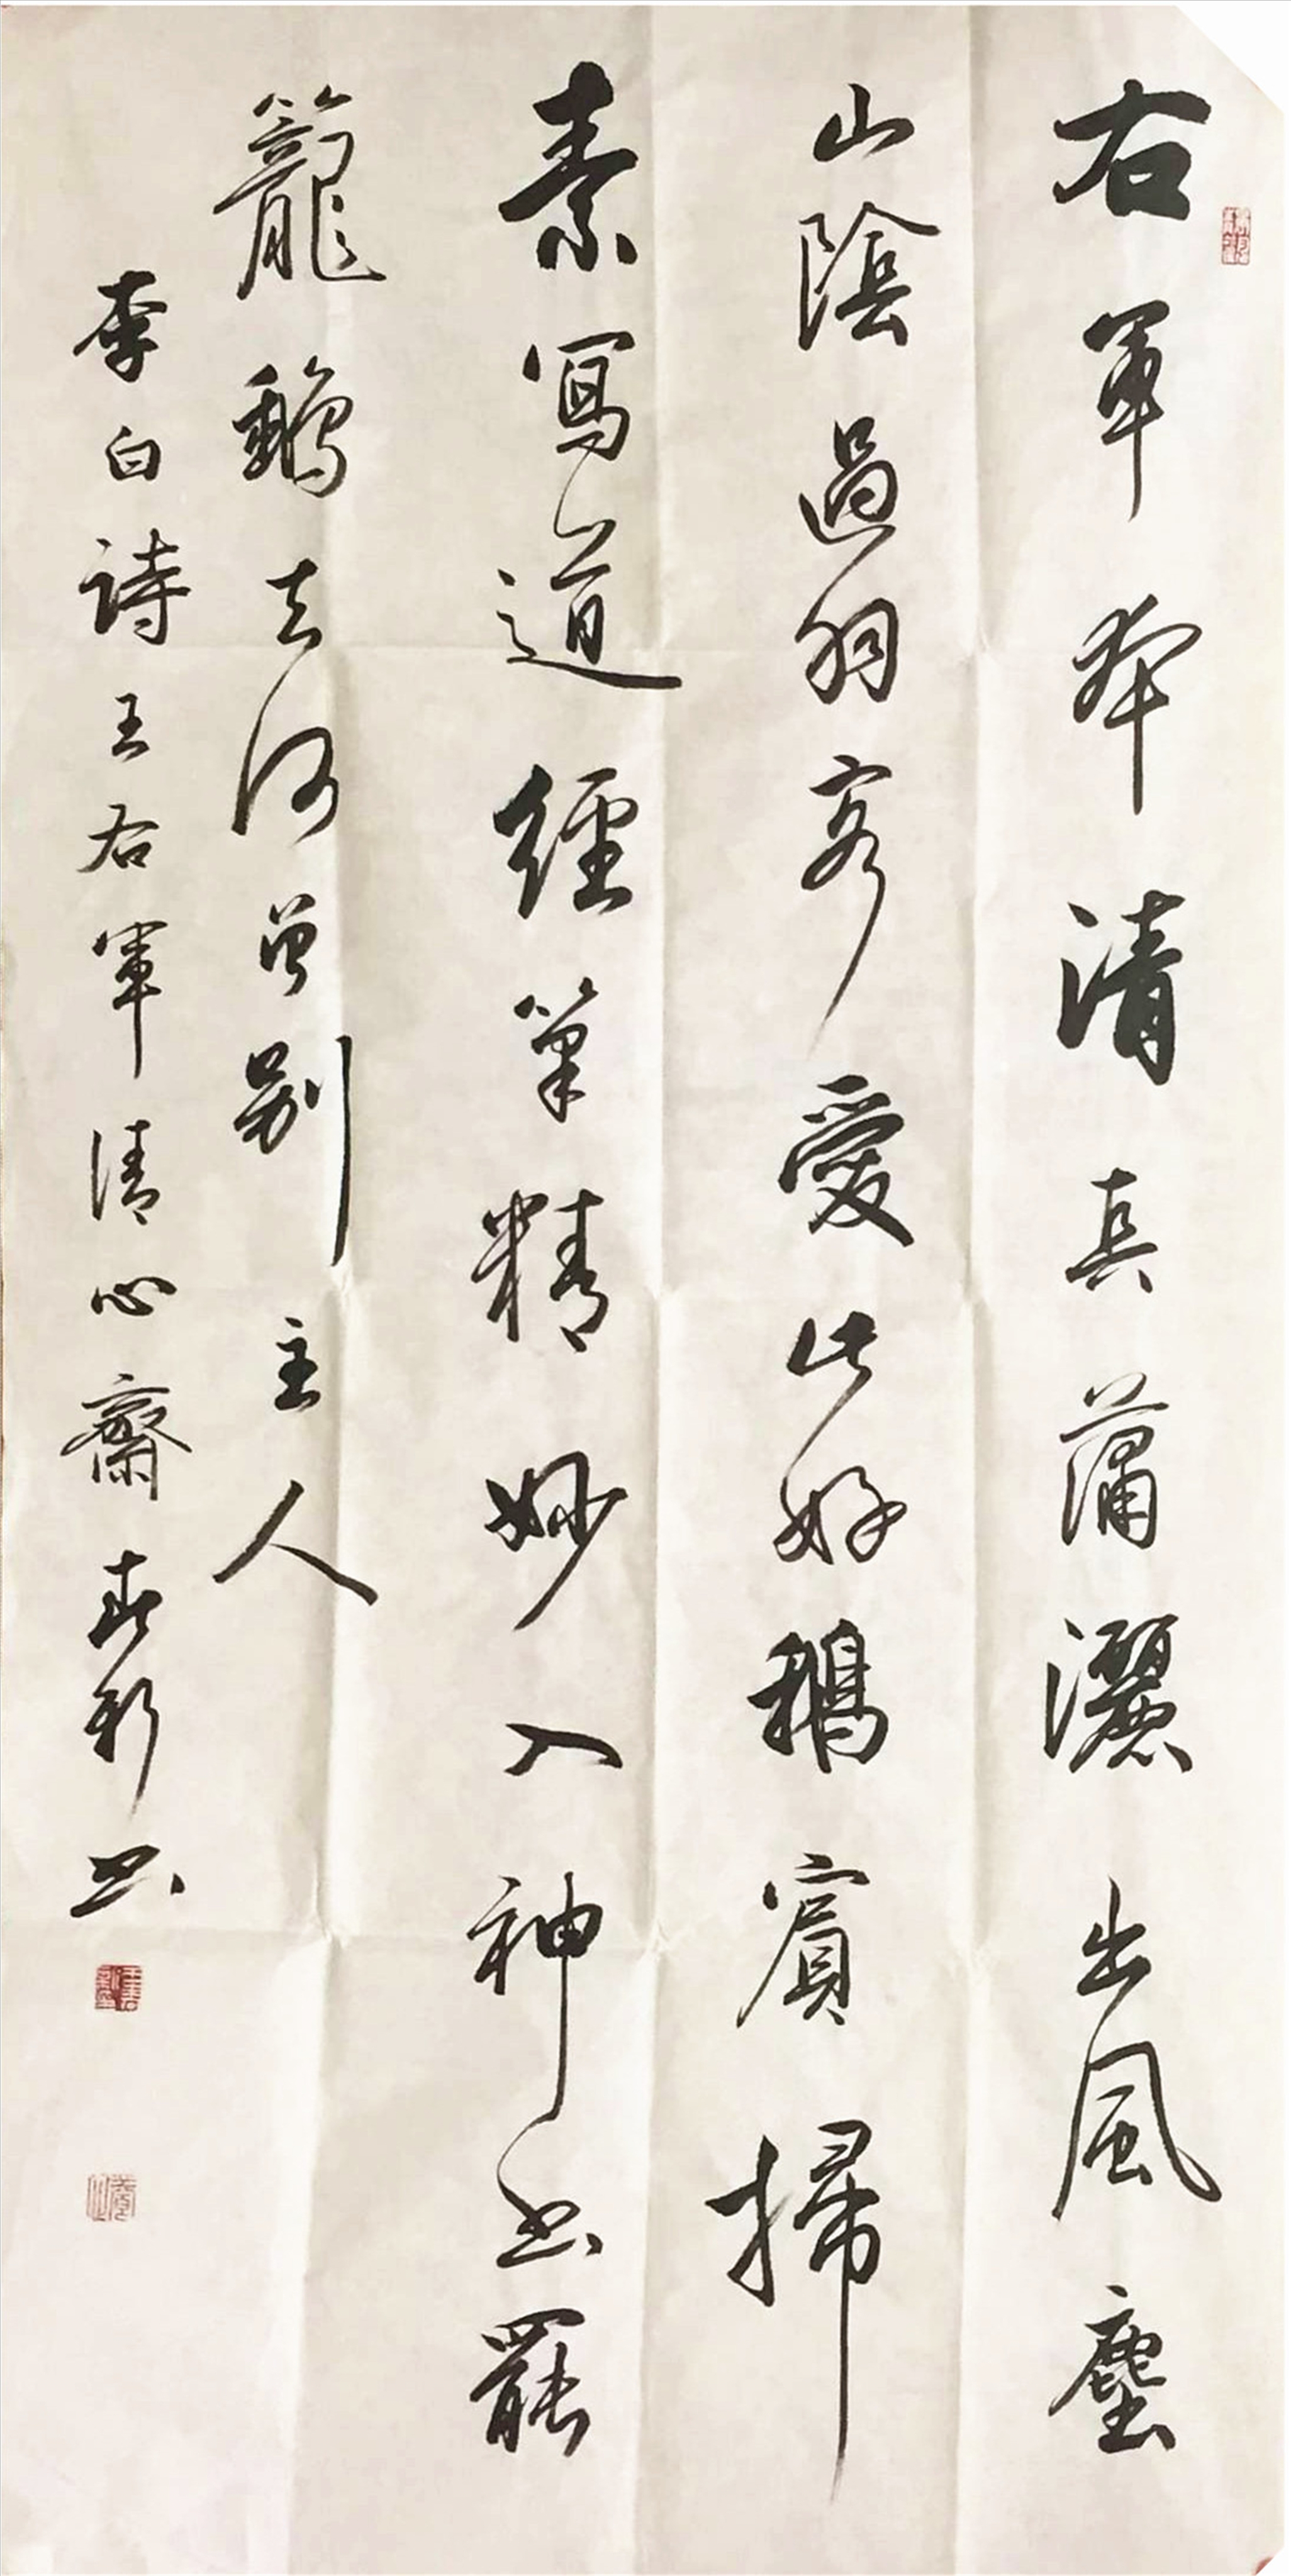 右軍本清真蕭灑出風塵
山陰過羽客愛此好鵝賓掃
素寫道經筆精妙入神書罷
籠鵝去何曾別主人
李白詩王右軍清心齋書